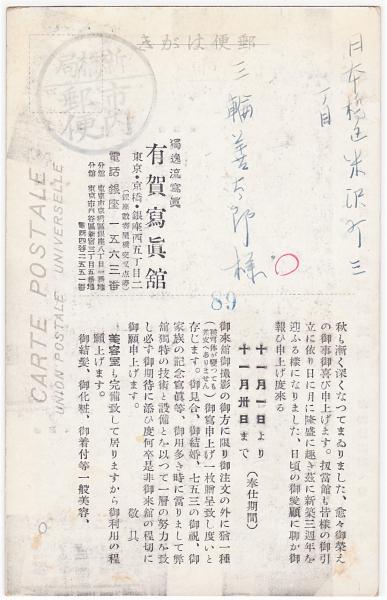 郵便はがき
新橋局
市内
郵便
CARTE POSTALE
UNION POSTALE UNIVERSELLE
日本橋区米沢町三
丁目
三輪善太郎様
89
獨逸流寫眞
有賀寫眞舘
東京・京橋・銀座西五丁目二
電話銀座一五六三番
分館 東京市京橋區銀座八丁目一番地
分館 東京市四谷區新宿三丁目五番地
電話四谷二五五一番
秋も漸く深くなつてまゐりました、愈々御榮え
の御事御喜び申上げます。扨當舘も皆樣の御引
立に依り日に月に隆盛に趣き茲に新築三週年を
迎ふる樣になりました、日頃の御愛顧に聊か御
報ひ申上げ度來る
十一月一日より
十一月卅日まで
(奉仕期間)
御來舘御撮影の御方に限り御注文の外に猶一種
御寫申上げ一枚贈呈致し度いと
存じます。御見合、御結婚、七五三の御祝、御
家族の記念寫眞等、御用多き時に當りまして弊
舘獨特の技術と設備とを以つて一層の努力を致
し必ず御期待に添ひ度何卒是非御來舘の程切に
御願申上げます。
敬具
美容室も完備致して居りますから御利用の程
願上げます。
御結髮、御化粧、御着付等一般美容、